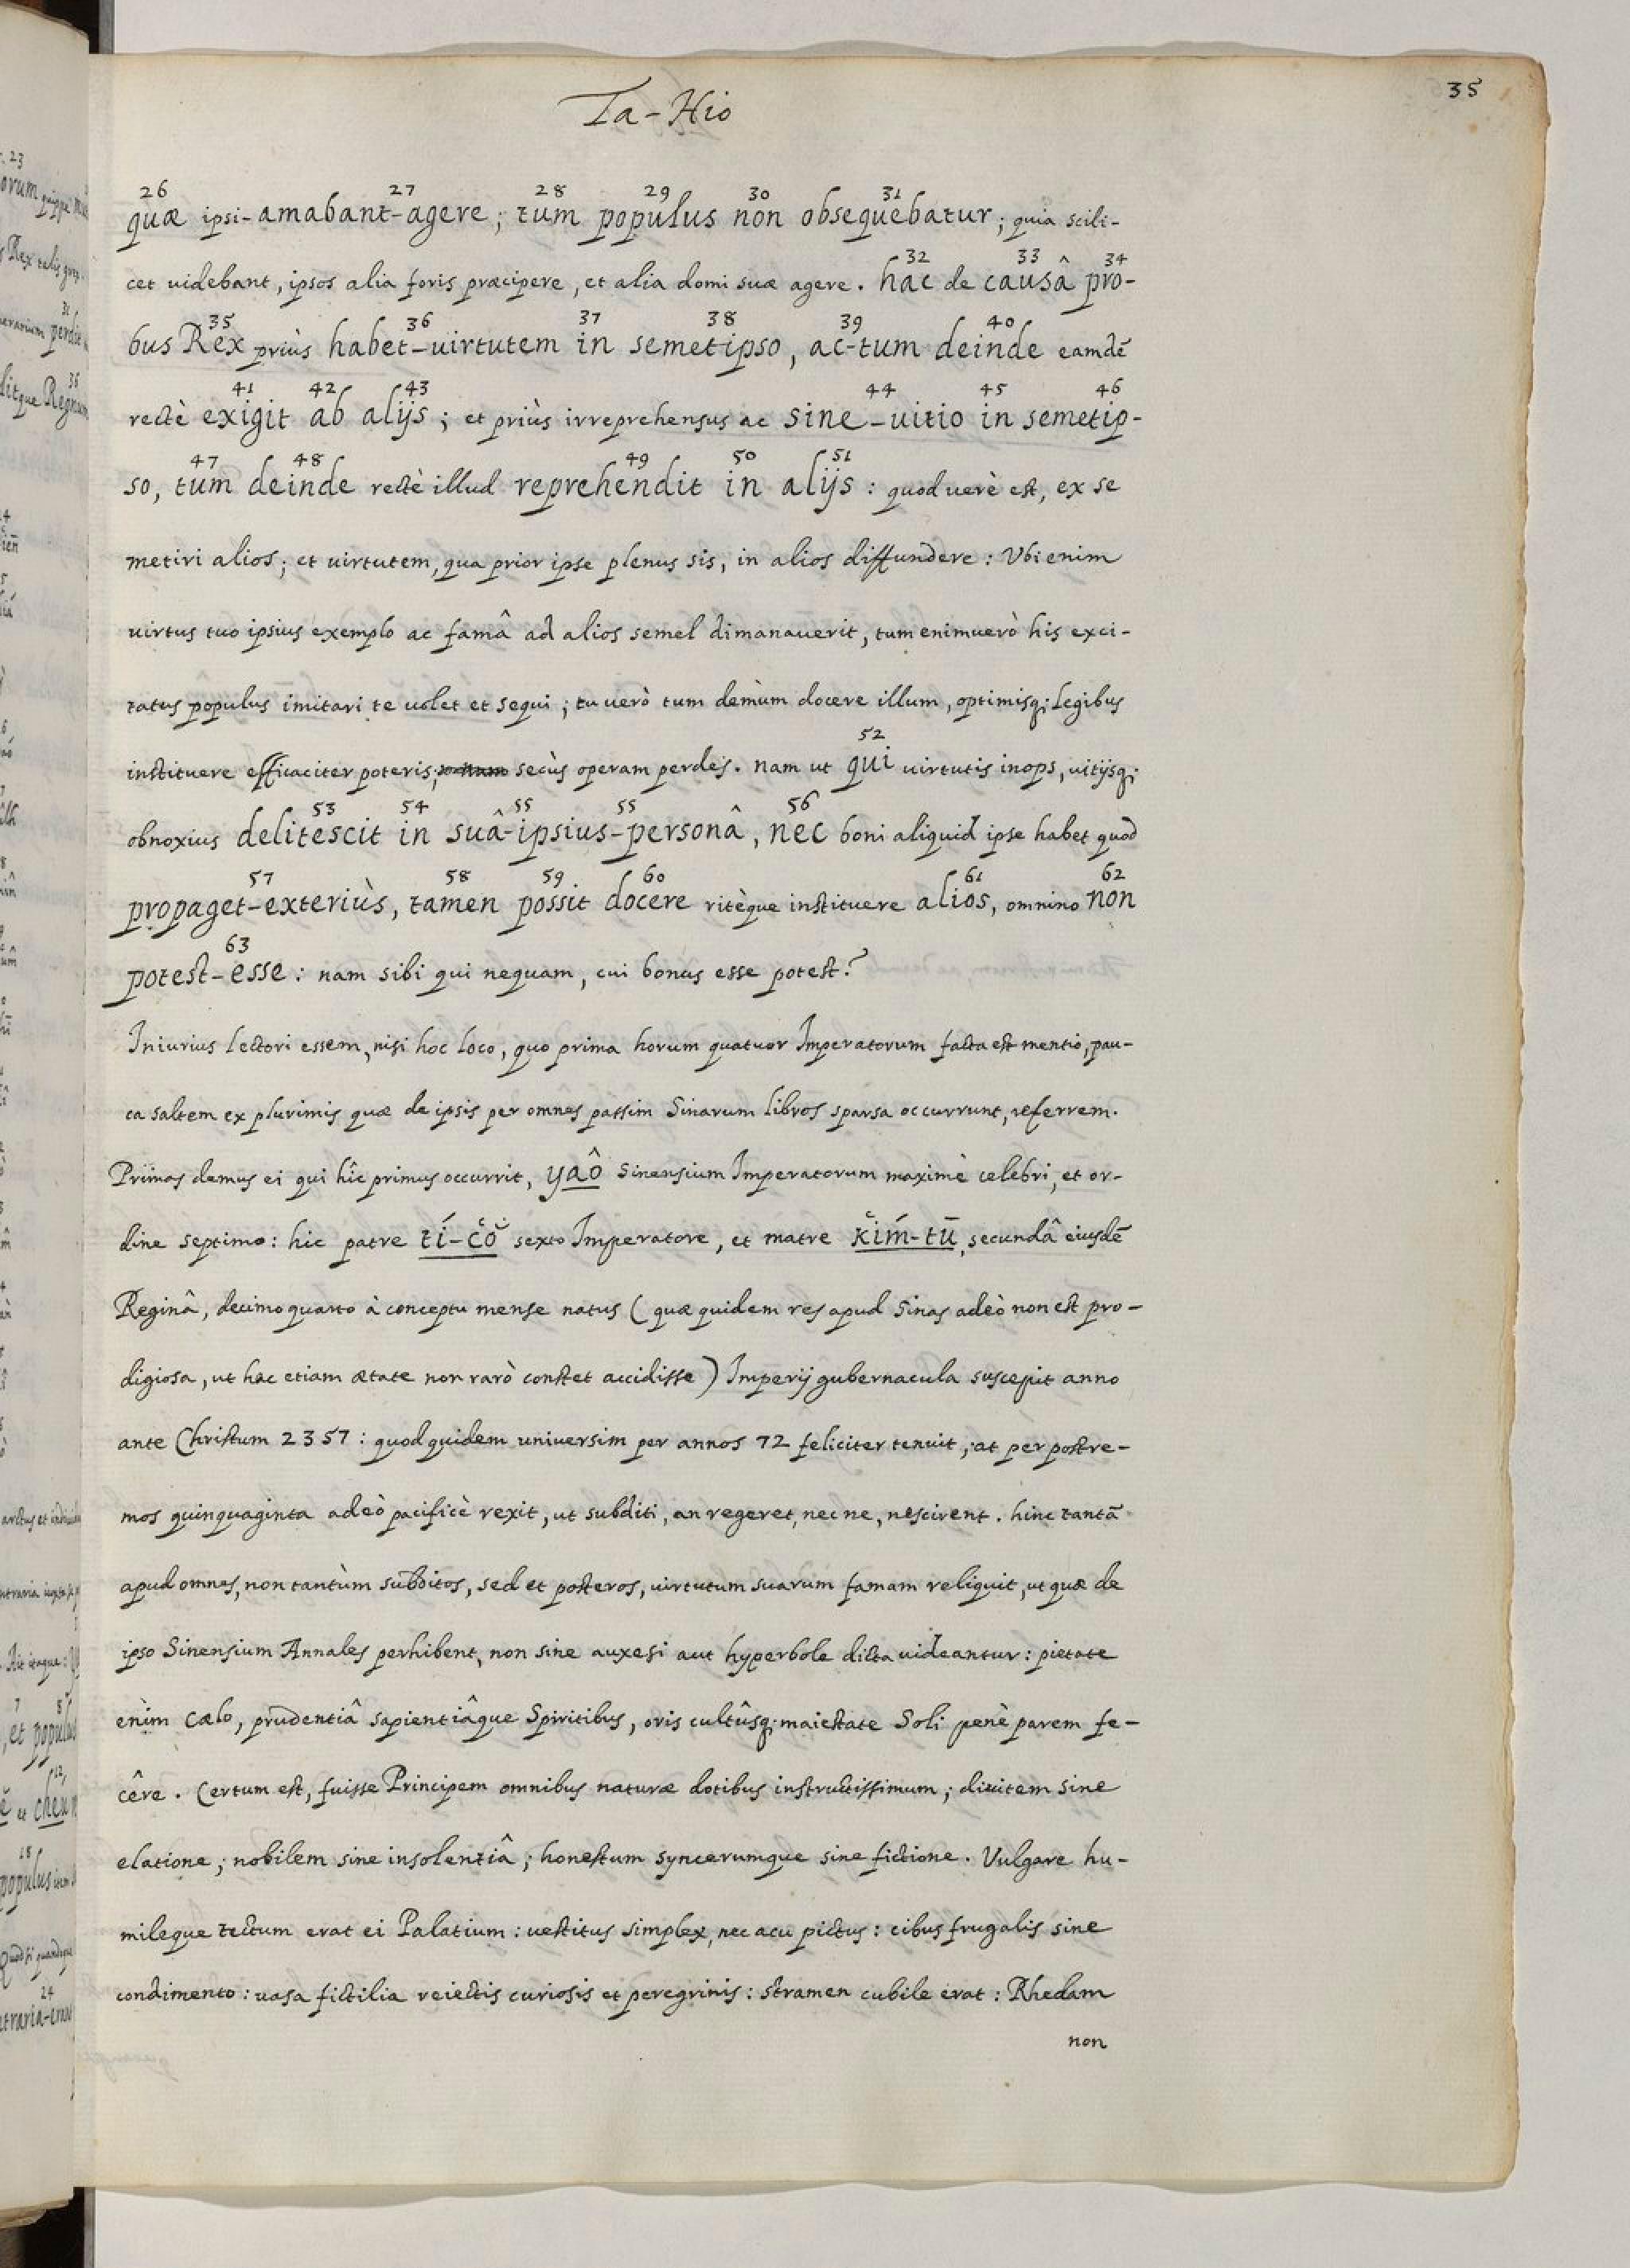 35
Ta-Hio
26 27 28 29 30 31
quæ ipsi-amabant-agere; tum populus non obsequebatur; quia scili-
32 33 34
cet uidebant, ipsos alia foris præcipere, et alia domi suæ agere. hac de causâ pro-
35 36 37 38 39 40
bus Rex priùs habet-uirtutem in semetipso, ac-tum deinde eamdē
41 42 43 44 45 46
rectè exigit ab alijs; et priùs irreprehensus ac sine-uitio in semetip-
47 48 49 50 51
so, tum deinde rectè illud reprehendit in alijs: quod uerè est, ex se
metiri alios; et uirtutem, qua prior ipse plenus sis, in alios diffundere: Vbi enim
uirtus tuo ipsius exemplo ac famâ ad alios semel dimanauerit, tum enimuerò his exci-
tatus populus imitari te uolet et sequi; tu uerò tum demùm docere illum, optimisq; legibus
52
instituere efficaciter poteris; secùs operam perdes. nam ut qui uirtutis inops, uitijsq;
53 54 55 55 56
obnoxius delitescit in suâ-ipsius-personâ, nec boni aliquid ipse habet quod
57 58 59 60 61 62
propaget-exteriùs, tamen possit docere ritèque instituere alios, omnino non
63
potest-esse: nam sibi qui nequam, cui bonus esse potest?
Iniurius lectori essem, nisi hoc loco, quo prima horum quatuor Imperatorum facta est mentio, pau-
ca saltem ex plurimis quæ de ipsis per omnes passim Sinarum libros sparsa occurrunt, referrem.
Primas demus ei qui hîc primus occurrit, yaô Sinensium Imperatorum maximè celebri, et or-
dine septimo: hic patre tí-cǒ sexto Imperatore, et matre kím-tū, secundâ eiusdē
Reginâ, decimo quarto à conceptu mense natus (quæ quidem res apud Sinas adeò non est pro-
digiosa, ut hac etiam ætate non rarò constet accidisse) Imperij gubernacula suscepit anno
ante Christum 2357: quod quidem uniuersim per annos 72 feliciter tenuit; at per postre-
mos quinquaginta adeò pacificè rexit, ut subditi, an regeret, nec ne, nescirent. hinc tantā
apud omnes, non tantùm subditos, sed et posteros, uirtutum suarum famam reliquit, ut quæ de
ipso Sinensium Annales perhibent, non sine auxesi aut hyperbole dicta uideantur: pietate
enim Cælo, prudentiâ sapientiâque Spiritibus, oris cultûsq; maiestate Soli penè parem fe-
cêre. Certum est, fuisse Principem omnibus naturæ dotibus instructissimum; diuitem sine
elatione; nobilem sine insolentiâ; honestum syncerumque sine fictione. Vulgare hu-
mileque tectum erat ei Palatium: uestitus simplex, nec acu pictus: cibus frugalis sine
condimento: uasa fictilia reiectis curiosis et peregrinis: stramen cubile erat: Rhedam
non